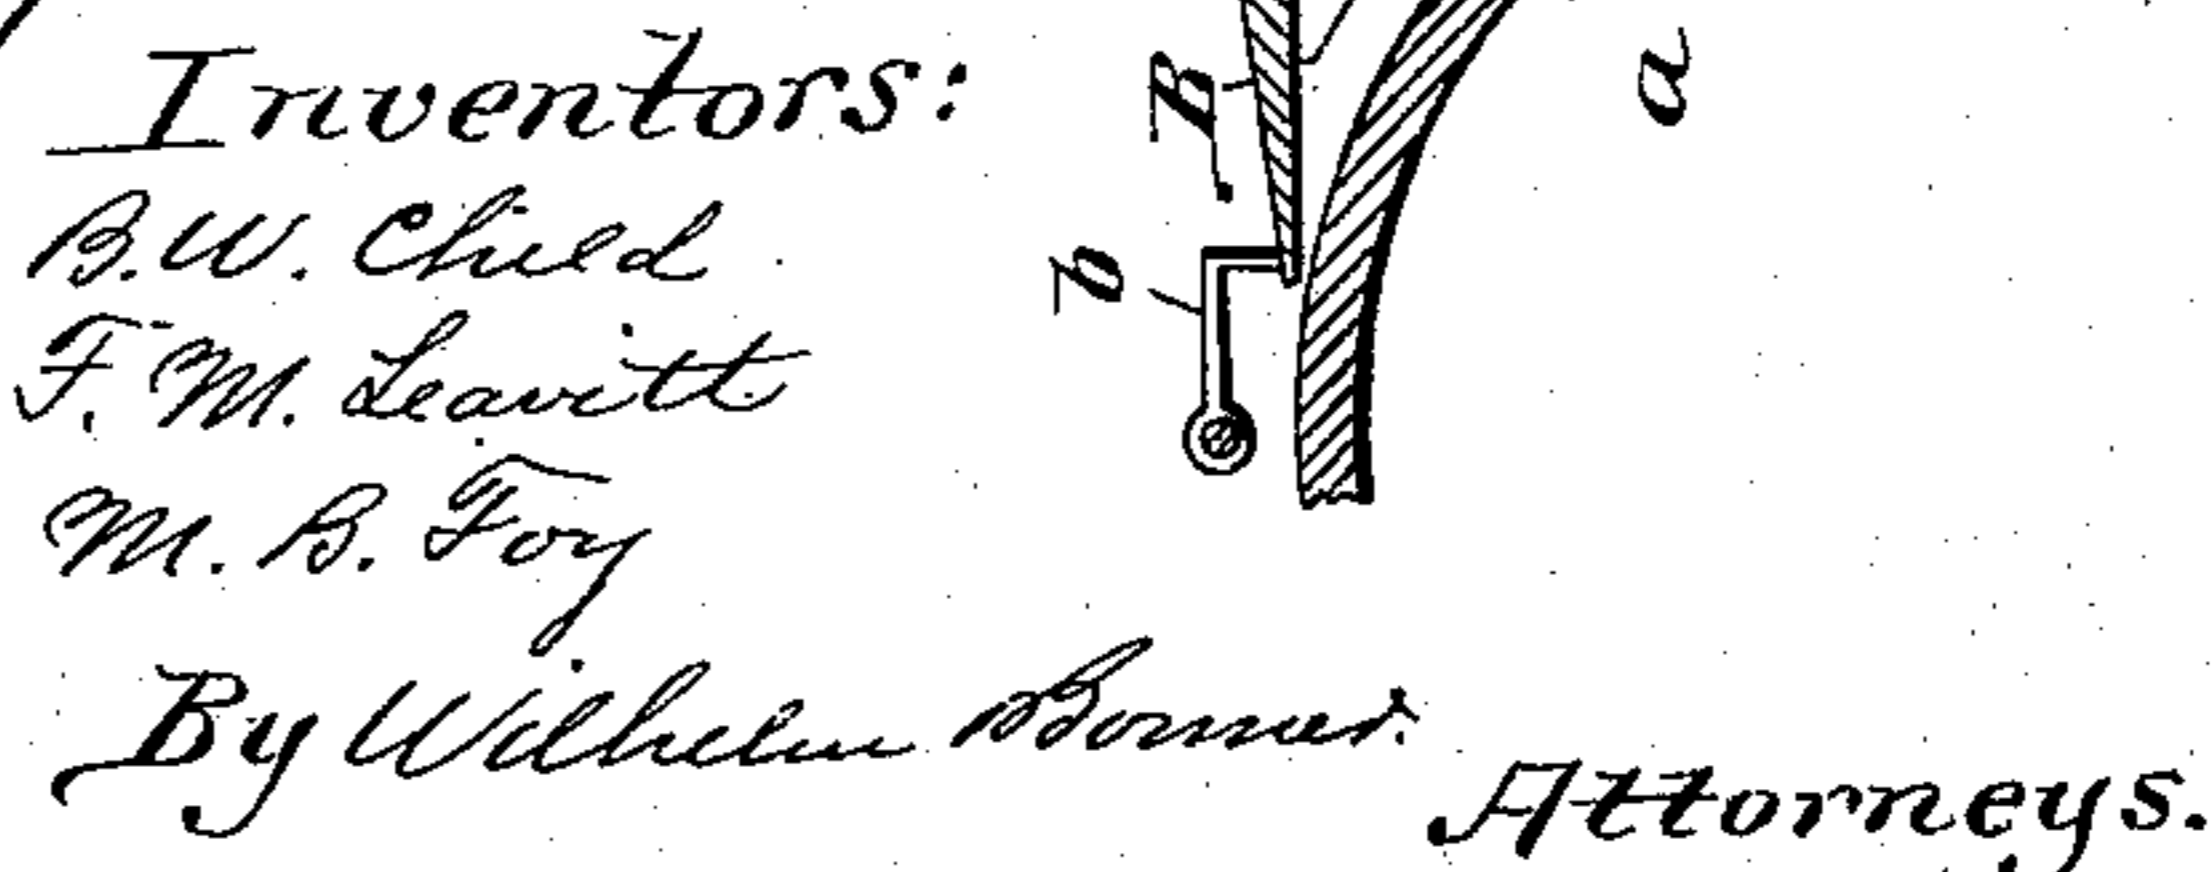 Inventors:
B. W. Child
F. M. Leavitt
M. B. Foy
By Wilhelm Bonner.
Attorneys.
B
b
a